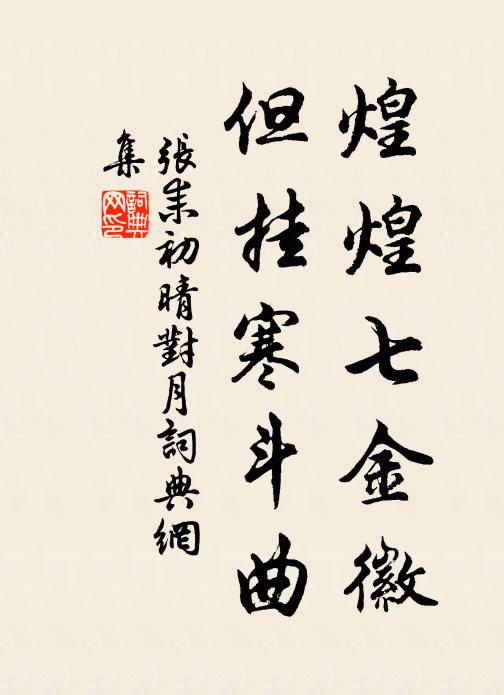 煌煌七金徽
但挂寒斗曲
張耒初晴對月詞典網
集
詞典
网印